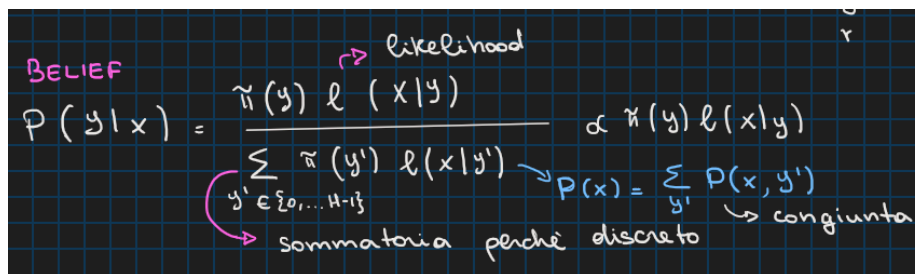 r
likelihood
BELIEF
P(y|x) = π(y) ℓ(x|y) / ∑ π(y') ℓ(x|y') ∝ π(y) ℓ(x|y)
y' ∈ {0,...H-1}
P(x) = ∑ P(x, y')
y'
congiunta
sommatoria perchè discreto